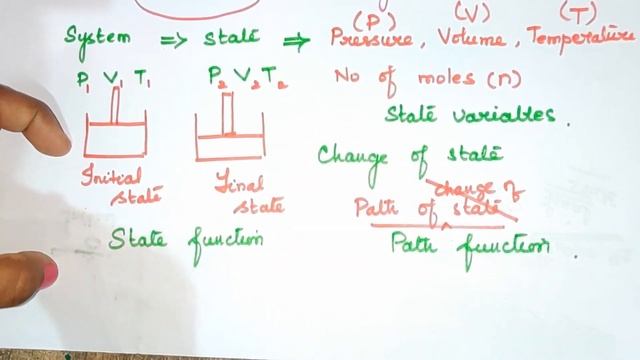 (P) (V) (T)
System => state => Pressure, Volume, Temperature
P1 V1 T1 P2 V2 T2 No of moles (n)
State variables.
Change of state
Initial state
Final state
change of
Path of state
State function
Path function.